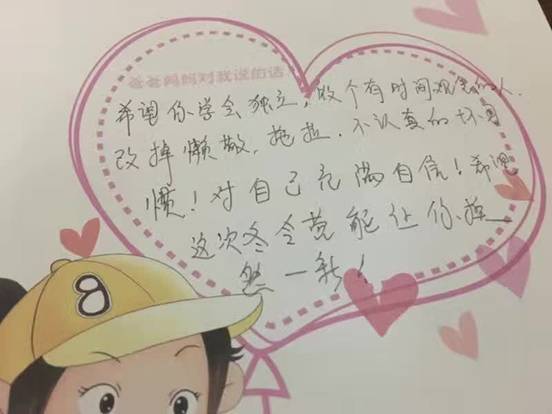 爸爸妈妈对我说的话
希望你学会独立，做个有时间观念的人.
改掉懒散，拖拉，不认真的坏习
惯！对自己充满自信！希望
这次冬令营能让你焕
然一新！
a